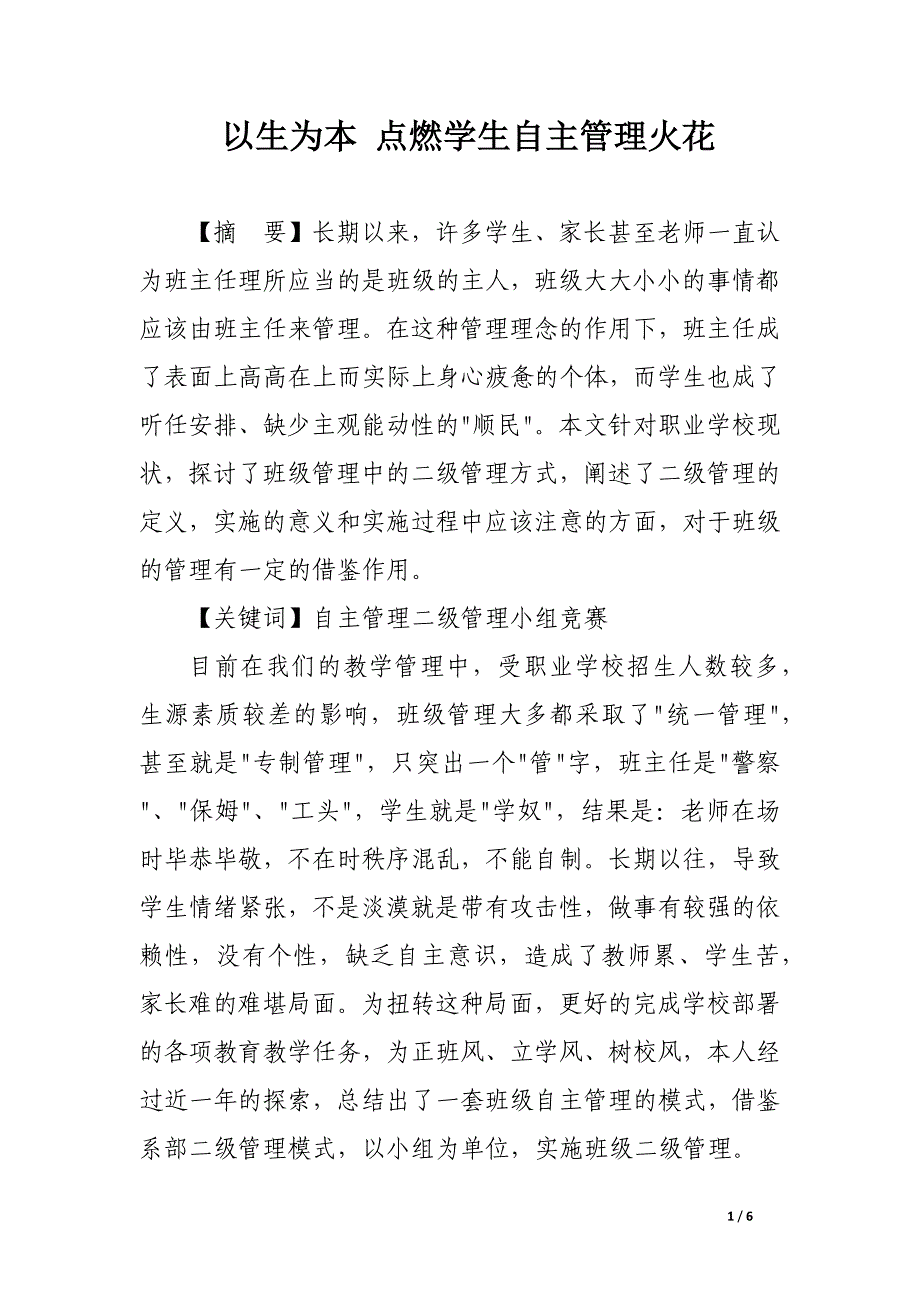 以生为本 点燃学生自主管理火花
【摘　要】长期以来，许多学生、家长甚至老师一直认
为班主任理所应当的是班级的主人，班级大大小小的事情都
应该由班主任来管理。在这种管理理念的作用下，班主任成
了表面上高高在上而实际上身心疲惫的个体，而学生也成了
听任安排、缺少主观能动性的"顺民"。本文针对职业学校现
状，探讨了班级管理中的二级管理方式，阐述了二级管理的
定义，实施的意义和实施过程中应该注意的方面，对于班级
的管理有一定的借鉴作用。
【关键词】自主管理二级管理小组竞赛
目前在我们的教学管理中，受职业学校招生人数较多，
生源素质较差的影响，班级管理大多都采取了"统一管理"，
甚至就是"专制管理"，只突出一个"管"字，班主任是"警察
"、"保姆"、"工头"，学生就是"学奴"，结果是：老师在场
时毕恭毕敬，不在时秩序混乱，不能自制。长期以往，导致
学生情绪紧张，不是淡漠就是带有攻击性，做事有较强的依
赖性，没有个性，缺乏自主意识，造成了教师累、学生苦，
家长难的难堪局面。为扭转这种局面，更好的完成学校部署
的各项教育教学任务，为正班风、立学风、树校风，本人经
过近一年的探索，总结出了一套班级自主管理的模式，借鉴
系部二级管理模式，以小组为单位，实施班级二级管理。
1 / 6